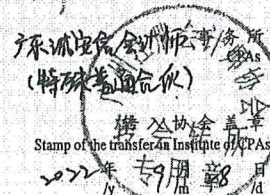 广东诚安信会计师事务所
CPAs
(特殊普通合伙)
转入协会盖章
Stamp of the transfer-in Institute of CPAs
2022年 9月 8日
/y /m /d